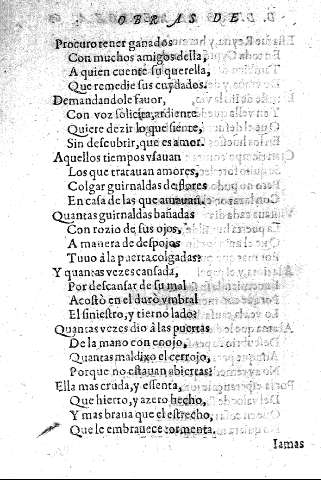 OBRAS DE
Procuro tener ganados
Con muchos amigos della,
A quien cuente su querella,
Que remedie sus cuydados.
Demandandole fauor,
Con voz solicita, ardiente
Quiere dezir lo que siente,
Sin descubrir, que es amor.
Aquellos tiempos vsauan
Los que tratauan amores,
Colgar guirnaldas de flores
En casa de las que amauan.
Quantas guirnaldas bañadas
Con rozio de sus ojos,
A manera de despojos
Tuuo á la puerta colgadas?
Y quantas vezes cansada,
Por descansar de su mal
Acostò en el duro vmbral
El siniestro, y tierno lado?
Quantas vezes dio á las puertas
De la mano con enojo,
Quantas maldixo el cerrojo,
Porque no estauan abiertas?
Ella mas cruda, y essenta,
Que hierro, y azero hecho,
Y mas braua que el estrecho,
Que le embrauece tormenta.
Iamas